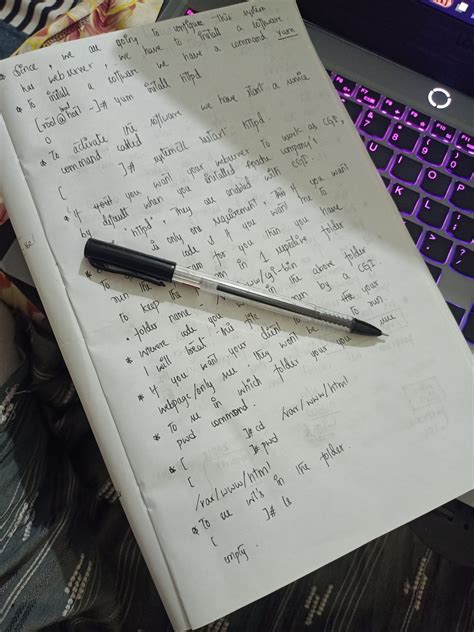 * Since, we are going to configure this system
has webserver, we have to install a software
* To install a software we have a command yum
[root@host ~]# yum install httpd
* To activate the software we have start a service
command called
[ ]# systemctl restart httpd
* If you want your webserver to work as CGI,
by default when you installed Apache company's
httpd, they are enabled with CGI.
is only one requirement, that if you want
code if you want this to
run the for you then you have
To keep the in 1 repective folder
• folder name /var/www/cgi-bin
* Whatever code you in the above folder
I will treat this file run by a CGI
* If you want your client to see your
webpage/only see they won't be to run
* To see in which folder your you are use
pwd command.
* [ ]# cd /var/www/html
[ ]# pwd
/var/www/html
* To see what's in the folder.
[ ]# ls
empty.